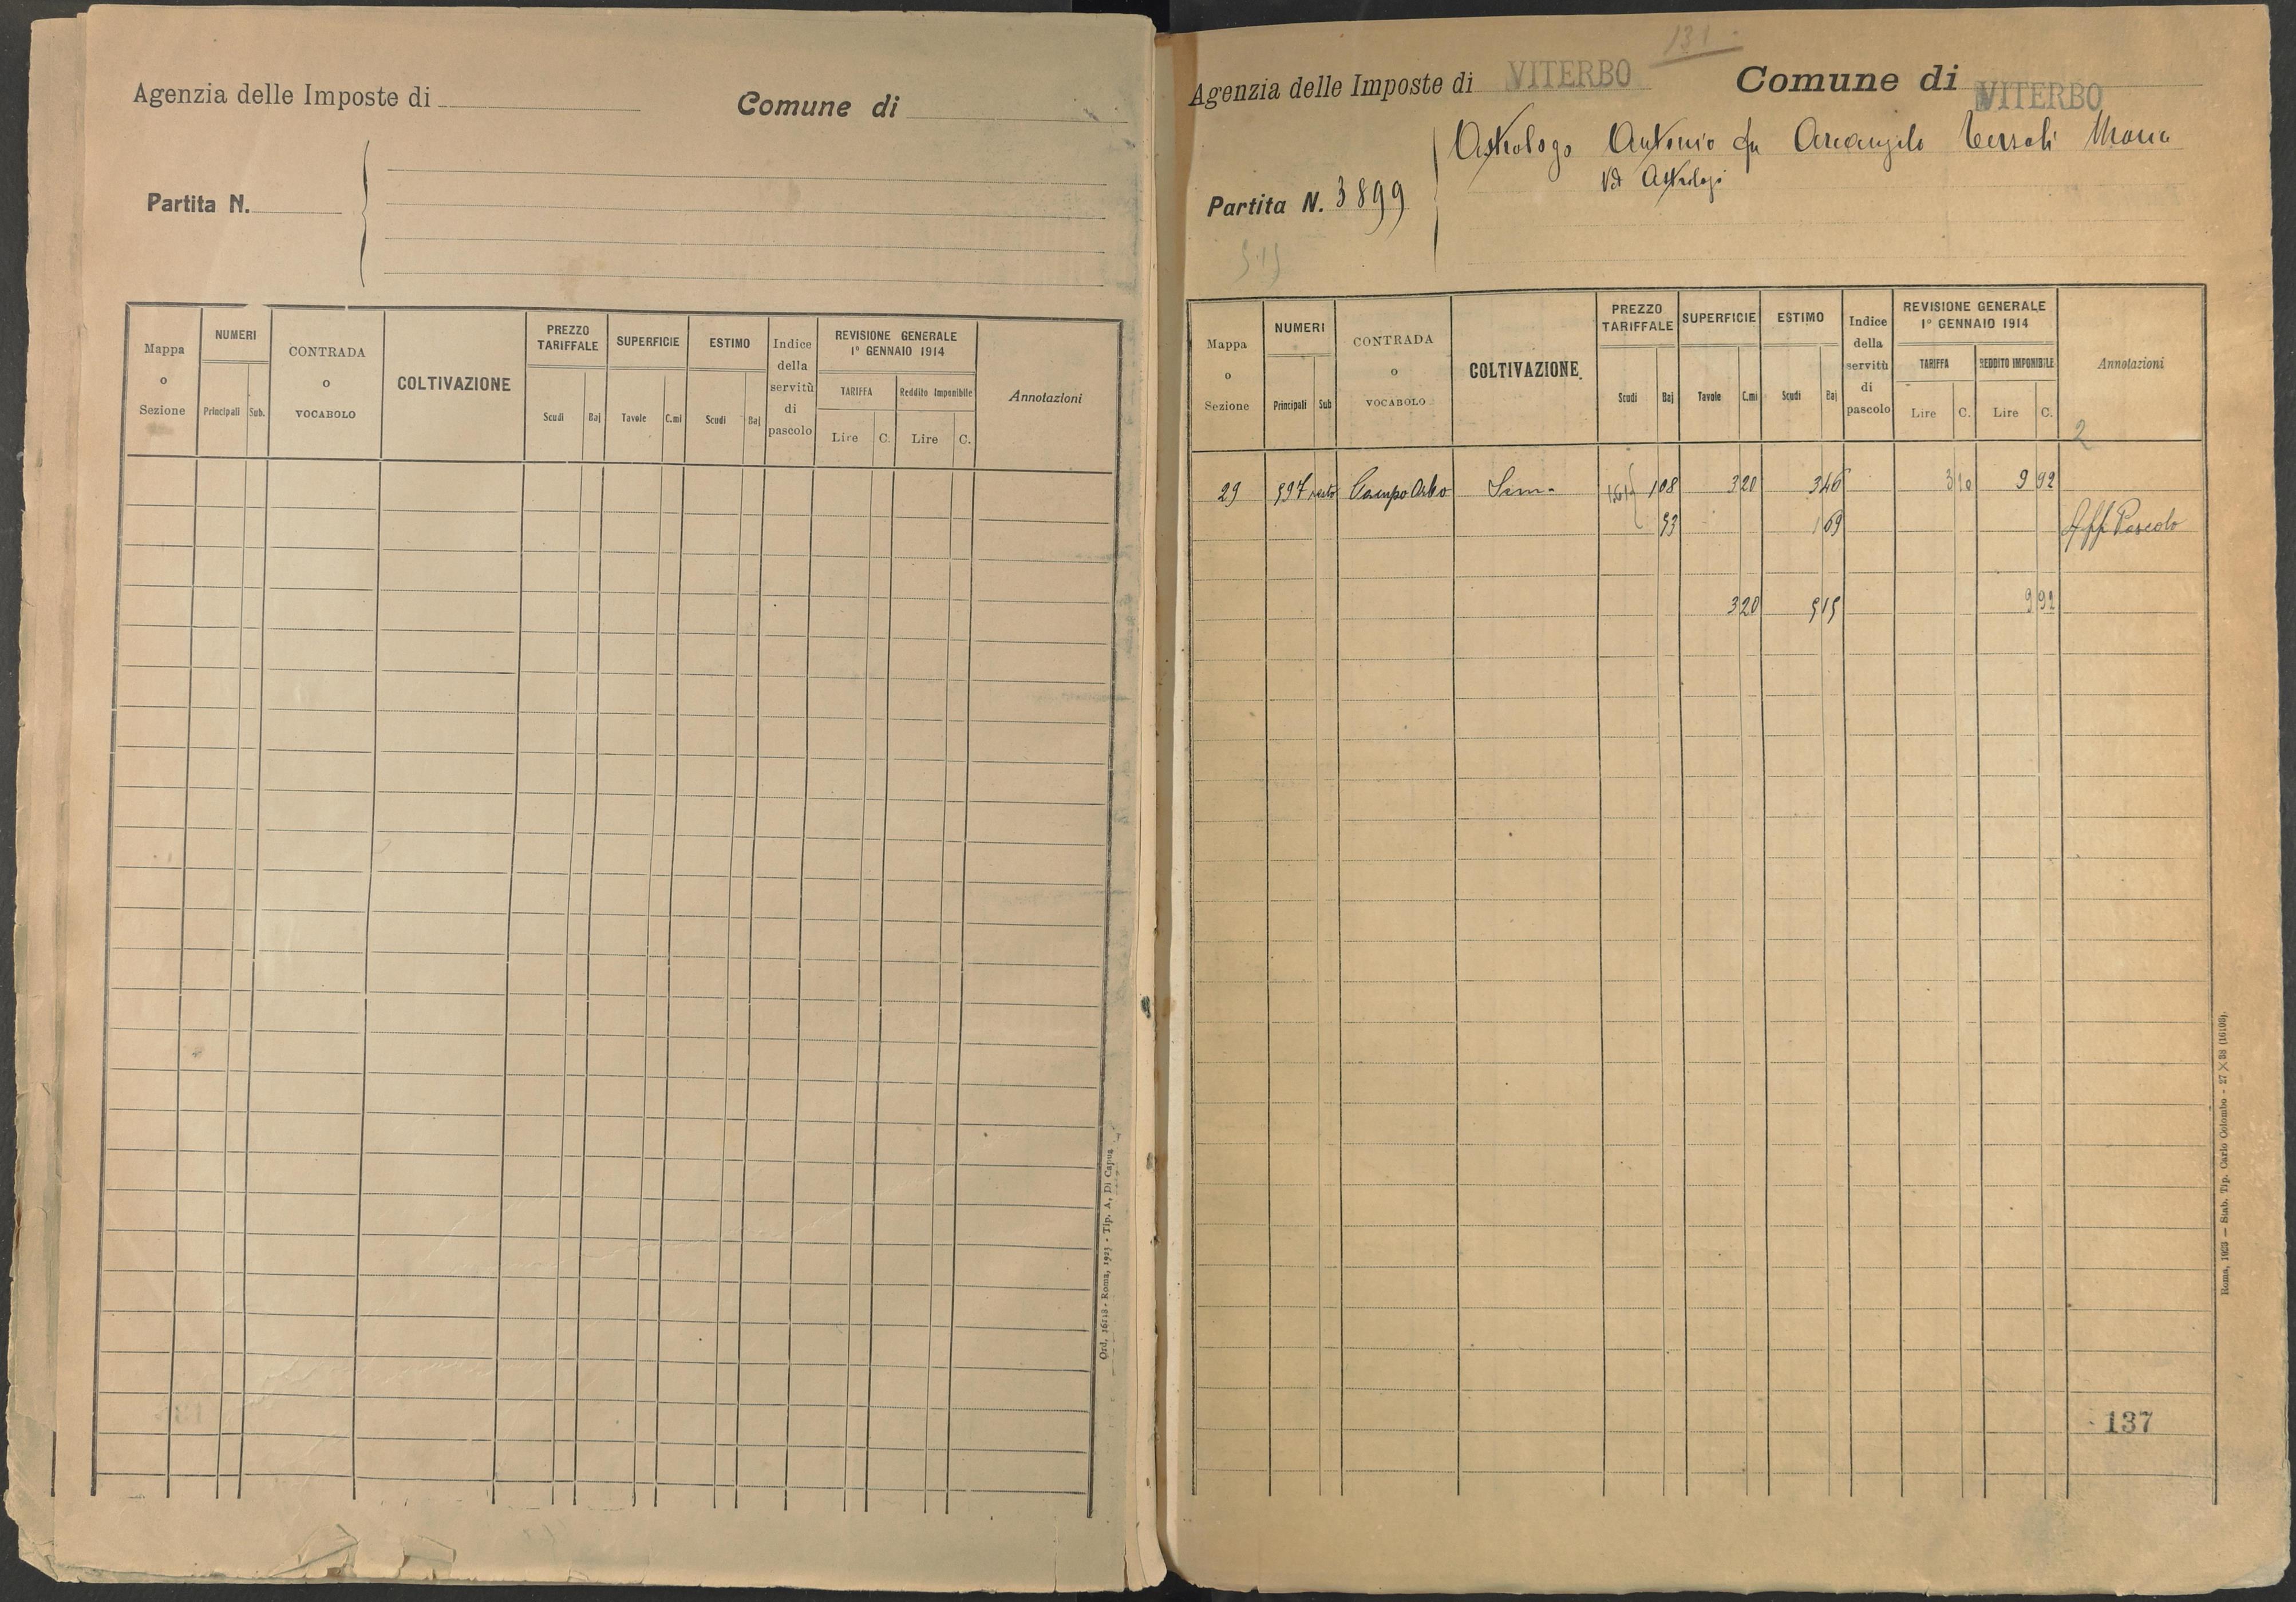 Agenzia delle Imposte di
Comune di
Partita N.
Mappa o Sezione
NUMERI
Principali Sub.
CONTRADA o VOCABOLO
COLTIVAZIONE
PREZZO TARIFFALE
Scudi Baj
SUPERFICIE
Tavole C.mi
ESTIMO
Scudi Baj
Indice della servitù di pascolo
REVISIONE GENERALE
1° GENNAIO 1914
TARIFFA
Lire C.
Reddito Imponibile
Lire C.
Annotazioni
Ord. 16118 - Roma, 1925 - Tip. A. Di Capua
131
Agenzia delle Imposte di VITERBO
Comune di VITERBO
Astrologo Antonio fu Arcangelo Maria
Vd Astrologi
Partita N. 3899
515
Mappa o Sezione
NUMERI
Principali Sub
CONTRADA o VOCABOLO
COLTIVAZIONE
PREZZO TARIFFALE
Scudi Baj
SUPERFICIE
Tavole C.mi
ESTIMO
Scudi Baj
Indice della servitù di pascolo
REVISIONE GENERALE
1° GENNAIO 1914
TARIFFA
Lire C.
REDDITO IMPONIBILE
Lire C.
Annotazioni
2
29 597 Campo Sem. 161 108 3 20 3 46 3 10 9 92
53 1 69 Aff Pascolo
3 20 5 15 9 92
137
Roma, 1925 — Stab. Tip. Carlo Colombo - 27 X 38 (16108).